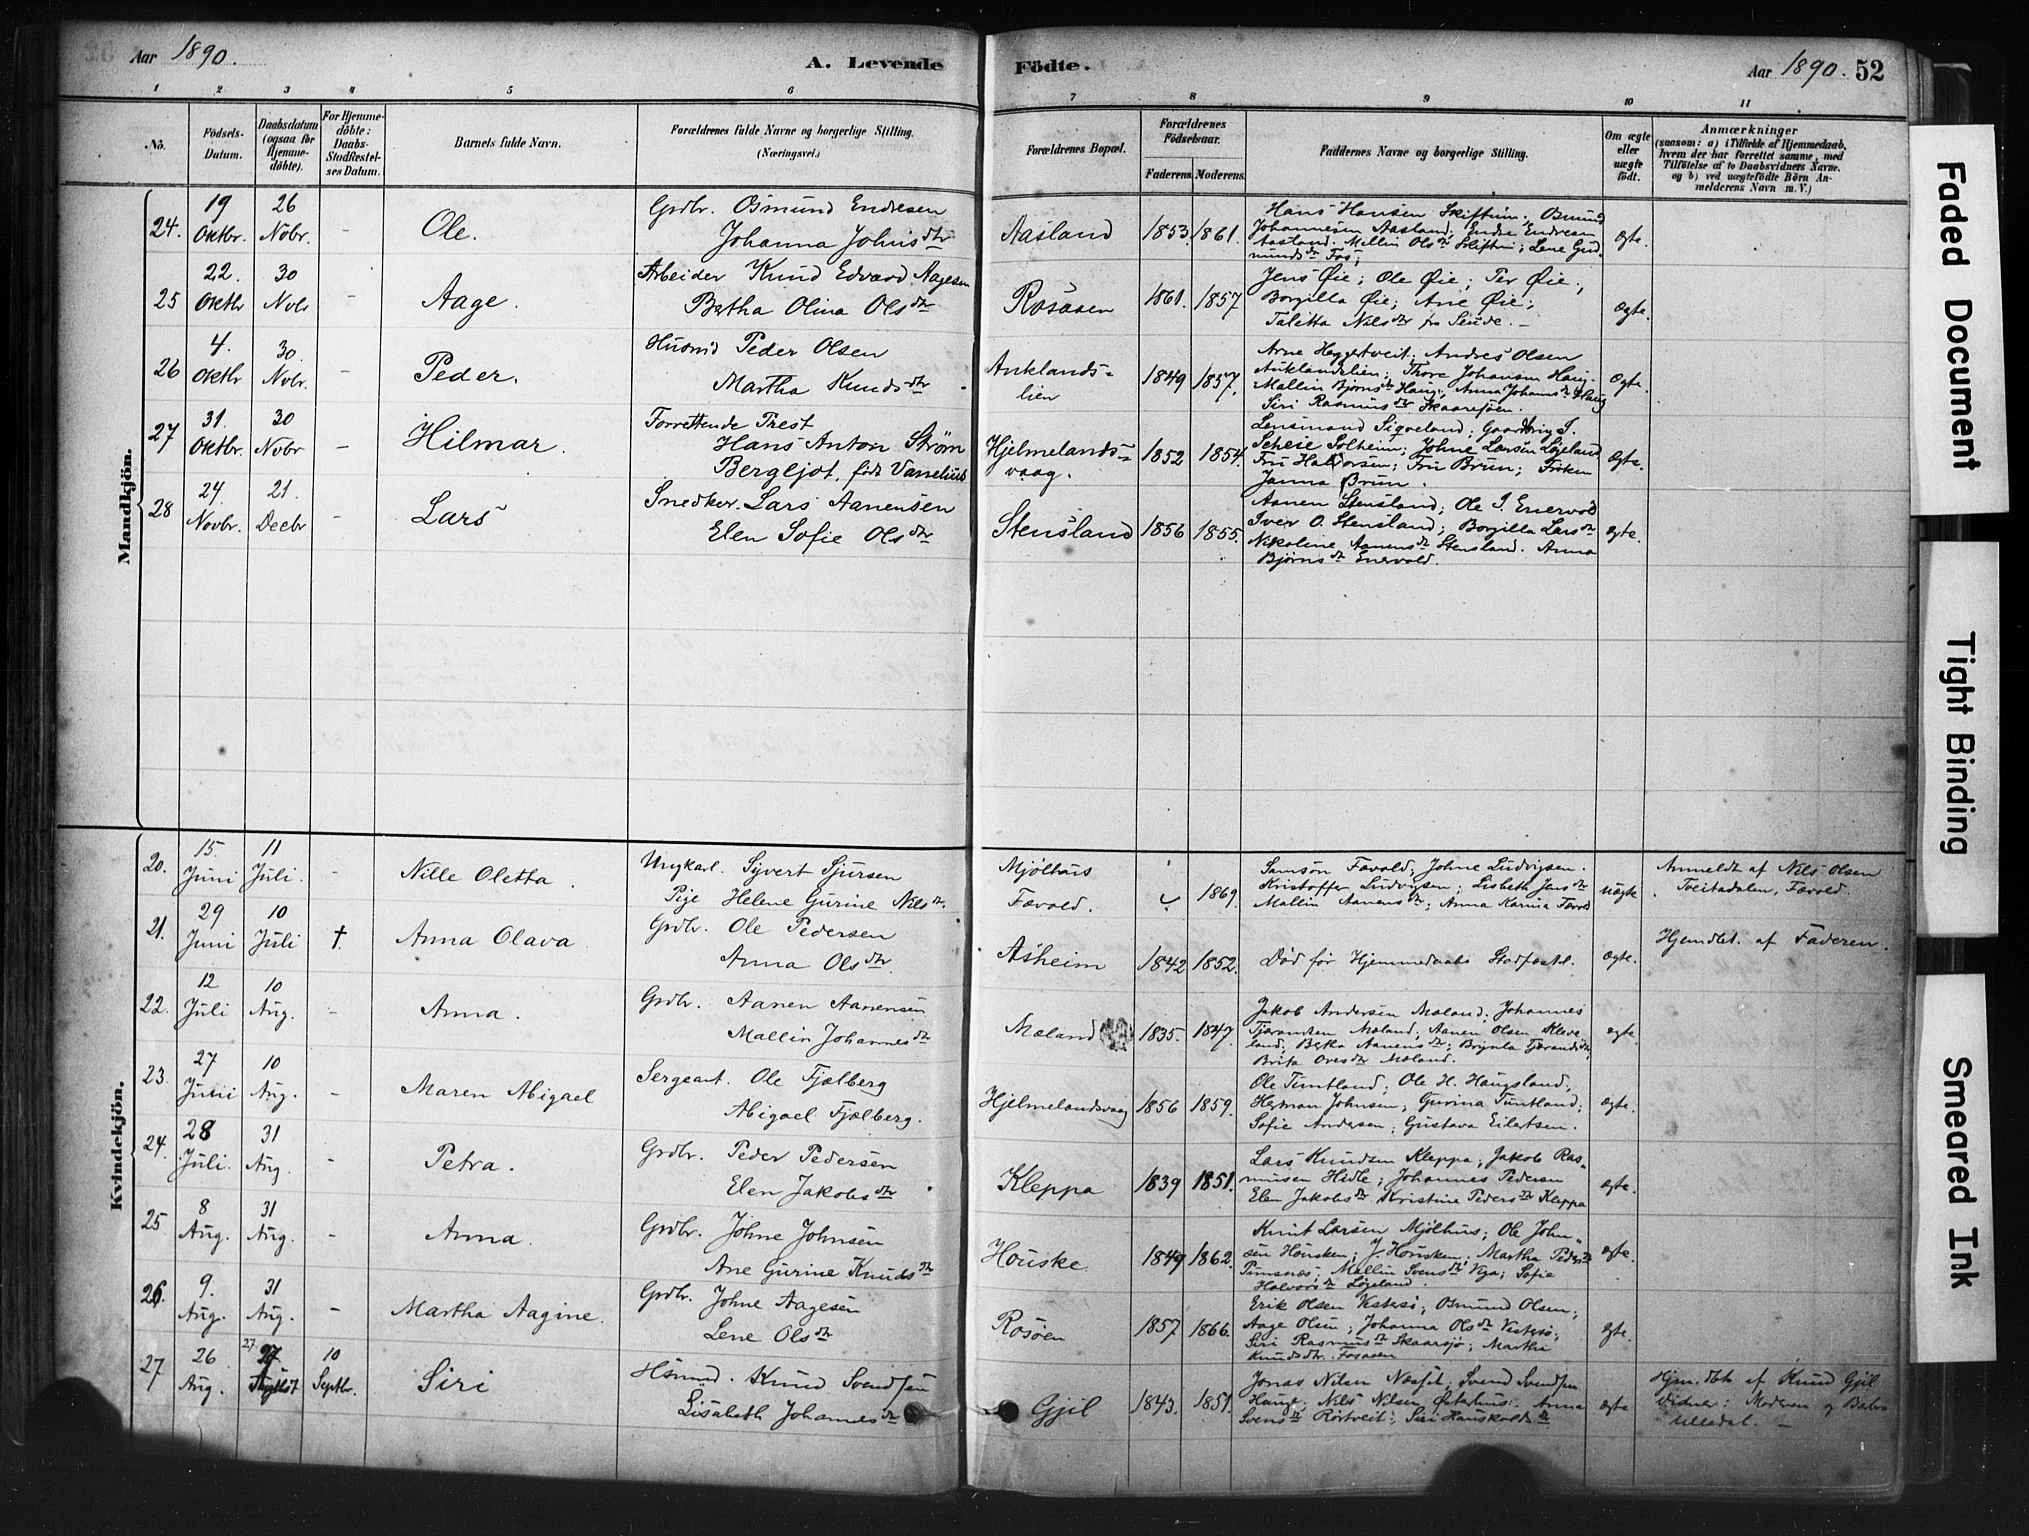 Aar 1890.
A. Levende
Födte.
Aar 1890. 52
1 2 3 4 5 6 7 8 9 10 11
No.
Födsels-Datum.
Daabsdatum (ogsaa for Hjemme-döbte).
For Hjemme-döbte: Daabs-Stadfæstel-ses Datum.
Barnets fulde Navn.
Forældrenes fulde Navne og borgerlige Stilling.
(Næringsvei.)
Forældrenes Bopæl.
Forældrenes Födselsaar.
Faderens. Moderens.
Faddernes Navne og borgerlige Stilling.
Om ægte eller uægte födt.
Anmærkninger
(saasom: a) i Tilfælde af Hjemmedaab, hvem der har forrettet samme, med Tilföielse af to Daabsvidners Navne. og b) ved uægtefödte Börn An-melderens Navn m. V.)
Mandkjön.
24. 19 Oktbr. 26 Novbr. Ole. Grdbr. Osmund Endresen
Johanna Johnsdtr
Aasland 1853. 1861. Hans Hansen Skiftun; Osmund
Johannesen Aasland; Endre Endresen
Aasland. Mallin Olsdtr Skiftun; Lene Gud-
mundsdtr Fos; Ægte.
25 22. Oktbr 30 Novbr - Aage. Arbeider Knud Edvard Aagesen
Bertha Olina Olsdtr
Rosaasen 1861. 1857 Jens Øie; Ole Øie; Per Øie;
Borgilla Øie; Ane Øie;
Taletta Nilsdtr fra Seude. - Ægte.
26 4. Oktbr 30. Novbr. - Peder. Husmd Peder Olsen
Martha Knudsdtr.
Auklands-
lien 1849 1857. Arne Heggertveit; Andres Olsen
Auklandslien; Thore Johansen Haug.
Mallin Bjørnsdtr Haug; Anna Johannsdtr Haug
Siri Rasmusdtr Skaaresjøen. Ægte.
27 31. Oktbr. 30 Novbr - Hilmar. Forrettende Prest
Hans Anton Strøm
Bergljot, født
Hjelmelands-
vaag. 1852 1854. Lensmand Sigveland;
Solheim; Johne Larsen Løjeland
Fru Halvorsen; Fru Brun; Frøken
Janna Brun. Ægte.
28 24. Novbr. 21. Decbr - Lars Snedker. Lars Aanensen
Elen Sofie Olsdtr
Stensland 1856 1855. Aanen Stensland; Ole I. Enervold
Iver O. Stensland; Borgilla Larsdtr
Nikoline Aanensdtr Stensland. Anna
Bjørnsdtr Enervold. Ægte.
Kvindekjön.
20. 15. Juni 11 Juli. - Nille Oletta. Ungkarl. Syvert Sjursen
Pige Helene Gurine Nilsdtr.
Mjølhus
Færold. 1869. Samson Færold; Johne Ludvigsen.
Kristoffer Ludvigsen; Lisbeth Jensdtr
Mallin Aanensdtr; Anna Karina Færold uægte Anmeldt af Nils Olsen
Tveitadalen, Færold.
21. 29 Juni 10 Juli †. Anna Olava Grdbr. Ole Pedersen
Anna Olsdtr.
Asheim 1842 1852. Død før Hjemmedaabs Stadfæstel. Ægte. Hjemdbt. af Faderen.
22. 12 Juli 10 Aug. - Anna. Grdbr. Aanen Aanensen
Mallin Johannesdtr
Mæland 1835. 1847. Jakob Andersen Mæland; Johannes
Tjærandsen Mæland; Aanen Olsen Kleve-
land; Bertha Aanensdtr; Brynla Tjærandsdtr,
Brita Ovesdtr Mæland. ægte.
23. 27 Juni 10 Aug. - Maren Abigael Sergeant. Ole Fjælberg
Abigael Fjælberg.
Hjelmelandsvaag 1856 1859. Ole Tuntland; Ole H. Haugsland;
Herman Johnsen; Gurina Tuntland;
Sofie Andersen; Gustava Eilertsen. ægte.
24. 28 Juli. 31 Aug. - Petra. Grdbr. Peder Pedersen
Elen Jakobsdtr.
Kleppa 1839 1851. Lars Knudsen Kleppa; Jakob Ras-
musen Hidle; Johannes Pedersen
Elen Jakobsdtr. Kristine Pedersdtr Kleppa ægte.
25 8 Aug. 31 Aug. - Anna. Grdbr. Johne Johnsen
Ane Gurine Knudsdtr
Houske 1849 1862. Knut Larsen Mjølhus; Ole John-
sen Housken; J. Housken; Martha Pedersdtr
Pimsnæs; Mallin Svensdtr Viga; Sofie
Halvorsdtr Løjeland ægte.
26. 9. Aug. 31 Aug. - Martha Aagine. Grdbr. Johne Aagesen
Lene Olsdtr
Rosøen 1857 1866. Erik Olsen Vestersø; Osmund Olsen;
Aage Olsen; Johanna Olsdtr Vestersø;
Siri Rasmusdtr Skaarsjø; Martha
Knudsdtr. Fosaasen ægte.
27. 26 Aug. 27 27 August 10 Septbr. Siri Husmd. Knud Svendsen
Lisabeth Johannesdtr
Gjil 1843. 1851. Jonas Nilsen Næsfit; Svend Svendsen
Hauge; Nils Nilsen Østerhus; Anna
Svensdtr Rørtveit; Siri ægte Hjm.dbt af Knud Gjil
Vidner: Moderen og
Ulledal. -
Faded Document
Tight Binding
Smeared Ink